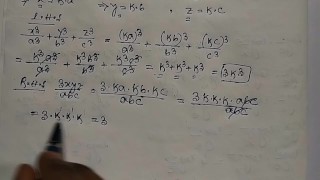 ⇒ y = k.b , z = k.c
L.H.S
x³/a³ + y³/b³ + z³/c³ = (ka)³/a³ + (kb)³/b³ + (kc)³/c³
= k³a³/a³ + k³b³/b³ + k³c³/c³ = k³ + k³ + k³ = 3k³
R.H.S 3xyz/abc = 3.ka.kb.kc/abc = 3.k.k.k.abc/abc
= 3.k.k.k = 3